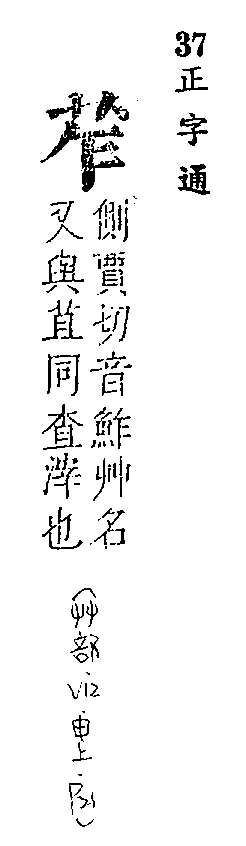 37 正字通
苲
側賈切音鮓艸名
又與苴同查滓也
(艸部